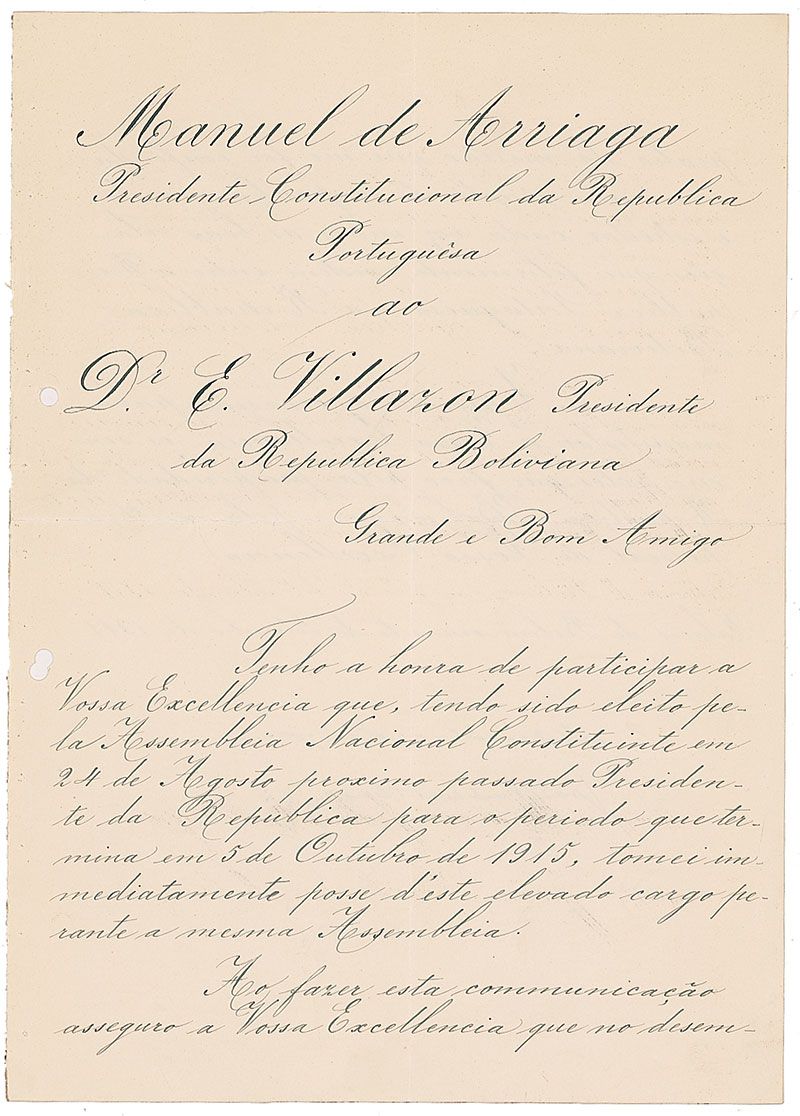 Manuel de Arriaga
Presidente Constitucional da Republica
Portuguêsa
ao
Dr. E. Villazon Presidente
da Republica Boliviana
Grande e Bom Amigo
Tenho a honra de participar a
Vossa Excellencia que, tendo sido eleito pe-
la Assembleia Nacional Constituinte em
24 de Agosto proximo passado Presiden-
te da Republica para o periodo que ter-
mina em 5 de Outubro de 1915, tomei im-
mediatamente posse d'éste elevado cargo pe-
rante a mesma Assembleia.
Ao fazer esta communicação
asseguro a Vossa Excellencia que no desem-